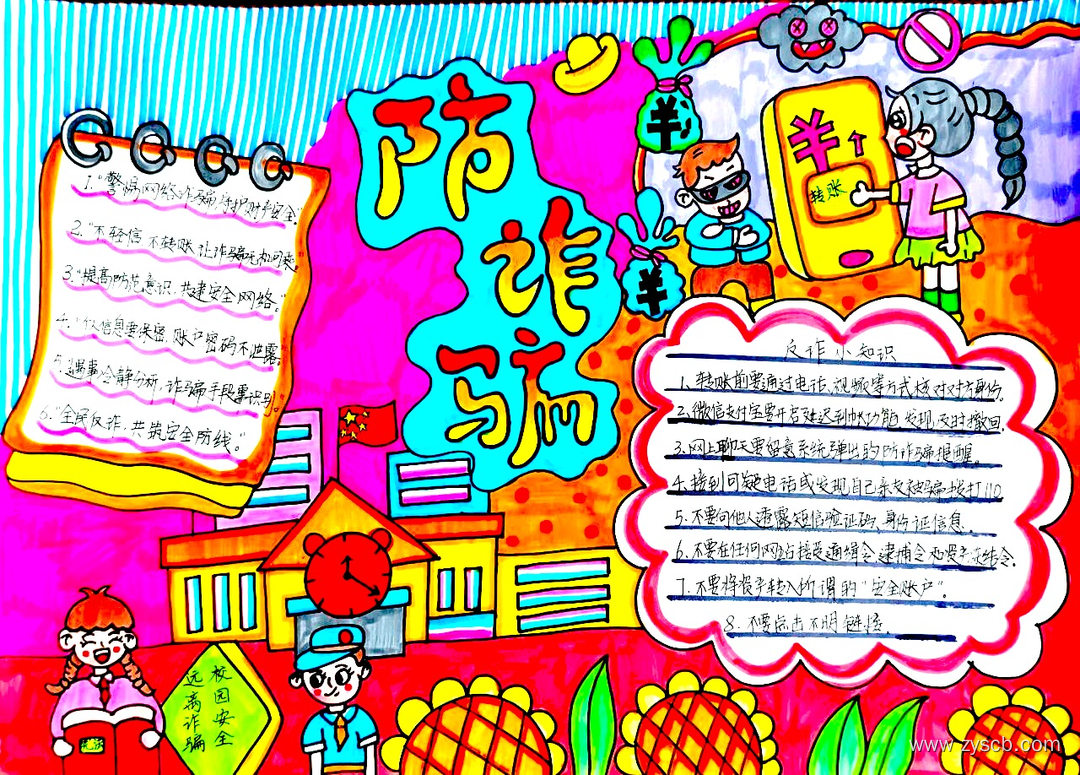 防诈骗
1."警惕网络诈骗,守护财产安全"
2."不轻信 不转账 让诈骗无机可乘。"
3."提高防范意识,共建安全网络。"
4."个人信息要保密,账户密码不泄露。"
5."遇事冷静分析,诈骗手段要识别。"
6."全民反诈,共筑安全防线。"
¥
¥
¥
转账
反诈小知识
1.转账前要通过电话、视频等方式核对对方身份.
2.微信支付宝要开启延迟到帐功能 发现及时撤回.
3.网上聊天要留意系统弹出的防诈骗提醒.
4.接到可疑电话或发现自己亲友被骗拨打110
5.不要向他人透露短信验证码、身份证信息.
6.不要在任何网站接受通缉令 逮捕令 冻结令.
7.不要将资产转入所谓的"安全账户".
8.不要点击不明链接
校园安全
远离诈骗
www.zyscb.com